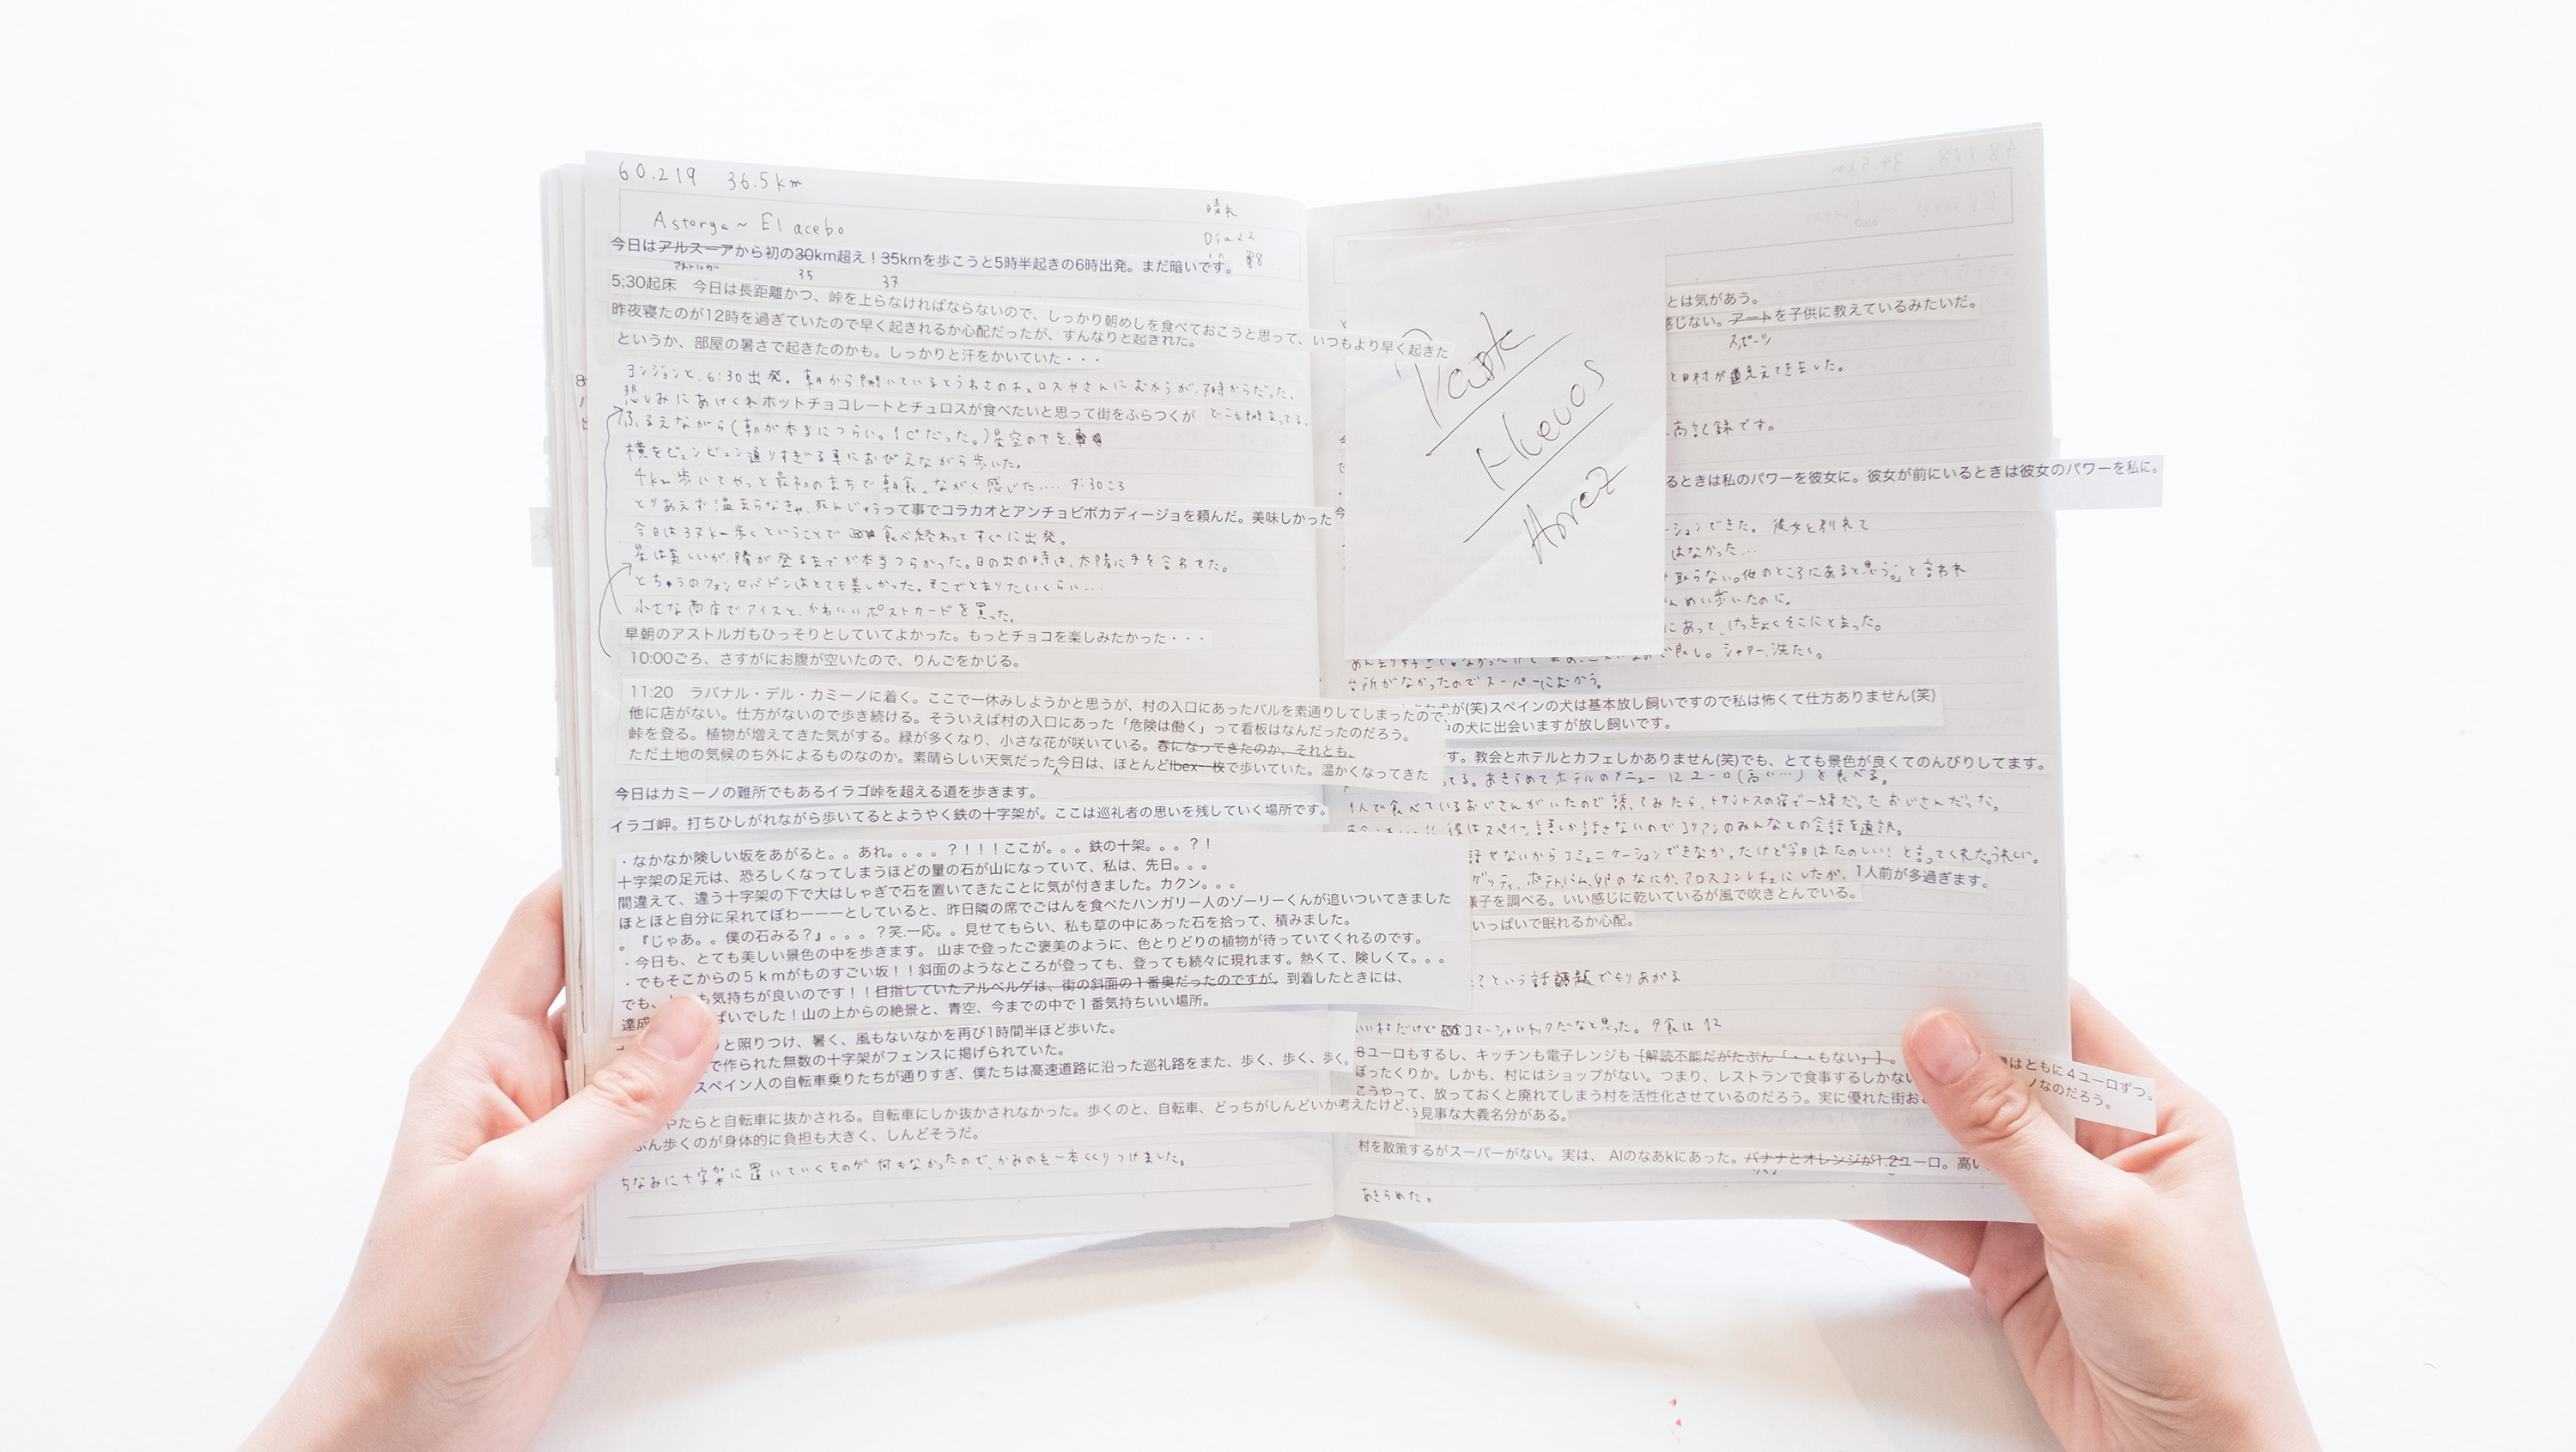 60.219 36.5km
晴れ
Astorga~El acebo
Dia22
今日はアルスーアから初の30km超え！35kmを歩こうと5時半起きの6時出発。まだ暗いです。
アストルガ 35 37
5;30起床 今日は長距離かつ、峠を上らなければならないので、しっかり朝めしを食べておこうと思って、いつもより早く起きた
昨夜寝たのが12時を過ぎていたので早く起きれるか心配だったが、すんなりと起きれた。
というか、部屋の暑さで起きたのかも。しっかりと汗をかいていた・・・
ヨンジョンと、6:30出発。朝から開いているとうわさのチュロスやさんにむかうが、7時からだった。
悲しみにあけくれホットチョコレートとチュロスが食べたいと思って街をふらつくが どこも閉まってる。
ふるえながら(朝が本当につらい。1℃だった。)星空の下を、
横をビュンビュン通りすぎる車におびえながら歩いた。
4km歩いてやっと最初のまちで朝食。ながく感じた.... 7:30ころ
とりあえず温まらなきゃ、死んじゃうって事でコラカオとアンチョビボカディージョを頼んだ。美味しかった
今日は37km歩くということで 食べ終わってすぐに出発。
星は美しいが、陽が登るまでが本当つらかった。日の出の時は、太陽に手を合わせた。
とちゅうのフォンセバドンはとても美しかった。そこでとまりたいくらい....
小さな商店でアイスと、かわいいポストカードを買った。
早朝のアストルガもひっそりとしていてよかった。もっとチョコを楽しみたかった・・・
10:00ごろ、さすがにお腹が空いたので、りんごをかじる。
11:20 ラバナル・デル・カミーノに着く。ここで一休みしようかと思うが、村の入口にあったバルを素通りしてしまったので、
他に店がない。仕方がないので歩き続ける。そういえば村の入口にあった「危険は働く」って看板はなんだったのだろう。
峠を登る。植物が増えてきた気がする。緑が多くなり、小さな花が咲いている。春になってきたのか、それとも、
ただ土地の気候のち外によるものなのか。素晴らしい天気だった今日は、ほとんどIbex一枚で歩いていた。温かくなってきた
今日はカミーノの難所でもあるイラゴ峠を超える道を歩きます。
イラゴ岬。打ちひしがれながら歩いてるとようやく鉄の十字架が。ここは巡礼者の思いを残していく場所です。
・なかなか険しい坂をあがると。。あれ。。。。？！！！ここが。。。鉄の十架。。。？！
十字架の足元は、恐ろしくなってしまうほどの量の石が山になっていて、私は、先日。。。
間違えて、違う十字架の下で大はしゃぎで石を置いてきたことに気が付きました。カクン。。。
ほとほと自分に呆れてぼわーーーとしていると、昨日隣の席でごはんを食べたハンガリー人のゾーリーくんが追いついてきました
。『じゃあ。。僕の石みる？』。。。？笑.一応。。見せてもらい、私も草の中にあった石を拾って、積みました。
・今日も、とても美しい景色の中を歩きます。 山まで登ったご褒美のように、色とりどりの植物が待っていてくれるのです。
・でもそこからの５ｋｍがものすごい坂！！斜面のようなところが登っても、登っても続々に現れます。熱くて、険しくて。。。
でも、 も気持ちが良いのです！！目指していたアルベルゲは、街の斜面の１番奥だったのですが、到着したときには、
達成 ぱいでした！山の上からの絶景と、青空、今までの中で１番気持ちいい場所。
と照りつけ、暑く、風もないなかを再び1時間半ほど歩いた。
で作られた無数の十字架がフェンスに掲げられていた。
スペイン人の自転車乗りたちが通りすぎ、僕たちは高速道路に沿った巡礼路をまた、歩く、歩く、歩く。
やたらと自転車に抜かされる。自転車にしか抜かされなかった。歩くのと、自転車、どっちがしんどいか考えたけど、
ぶん歩くのが身体的に負担も大きく、しんどそうだ。
ちなみに十字架に置いていくものが何もなかったので、かみのも一本くくりつけました。
Huevos
Arroz
とは気があう。
感じない。アートを子供に教えているみたいだ。
スポーツ
村が見えてきました。
高記録です。
るときは私のパワーを彼女に。彼女が前にいるときは彼女のパワーを私に。
ーションできた。彼女と別れて
はなかった...
取らない。他のところにあると思う。」と言われ
んめい歩いたのに。
にあって、けっきょくそこにとまった。
で良し。シャワー、洗たく。
台所がなかったのでスーパーにむかう。
犬が(笑)スペインの犬は基本放し飼いですので私は怖くて仕方ありません(笑)
の犬に出会いますが放し飼いです。
す。教会とホテルとカフェしかありません(笑)でも、とても景色が良くてのんびりしてます。
てる。あきらめてホテルのメニュー12ユーロ(高い...)を食べる。
1人で食べているおじさんがいたので誘ってみたら、トサントスの宿で一緒だったおじさんだった。
彼はスペイン語しか話さないのでコリアンのみんなとの会話を通訳。
話せないからコミュニケーションできなかったけど今日はたのしい！と言ってくれた。うれしい。
ゲッティ、ポテトとハム、卵のなにか、アロスコンレチェにしたが、1人前が多過ぎます。
様子を調べる。いい感じに乾いているが風で吹きとんでいる。
いっぱいで眠れるか心配。
という話題でもりあがる
いい村だけど コマーシャルチックだなと思った。夕食は12
8ユーロもするし、キッチンも電子レンジも［解読不能だがたぶん「・・もない」］。
はともに４ユーロずつ。
ぼったくりか。しかも、村にはショップがない。つまり、レストランで食事するしかない
ノなのだろう。
こうやって、放っておくと廃れてしまう村を活性化させているのだろう。実に優れた街お
う見事な大義名分がある。
村を散策するがスーパーがない。実は、 AIのなあkにあった。バナナとオレンジが1.2ユーロ。高い
あきらめた。